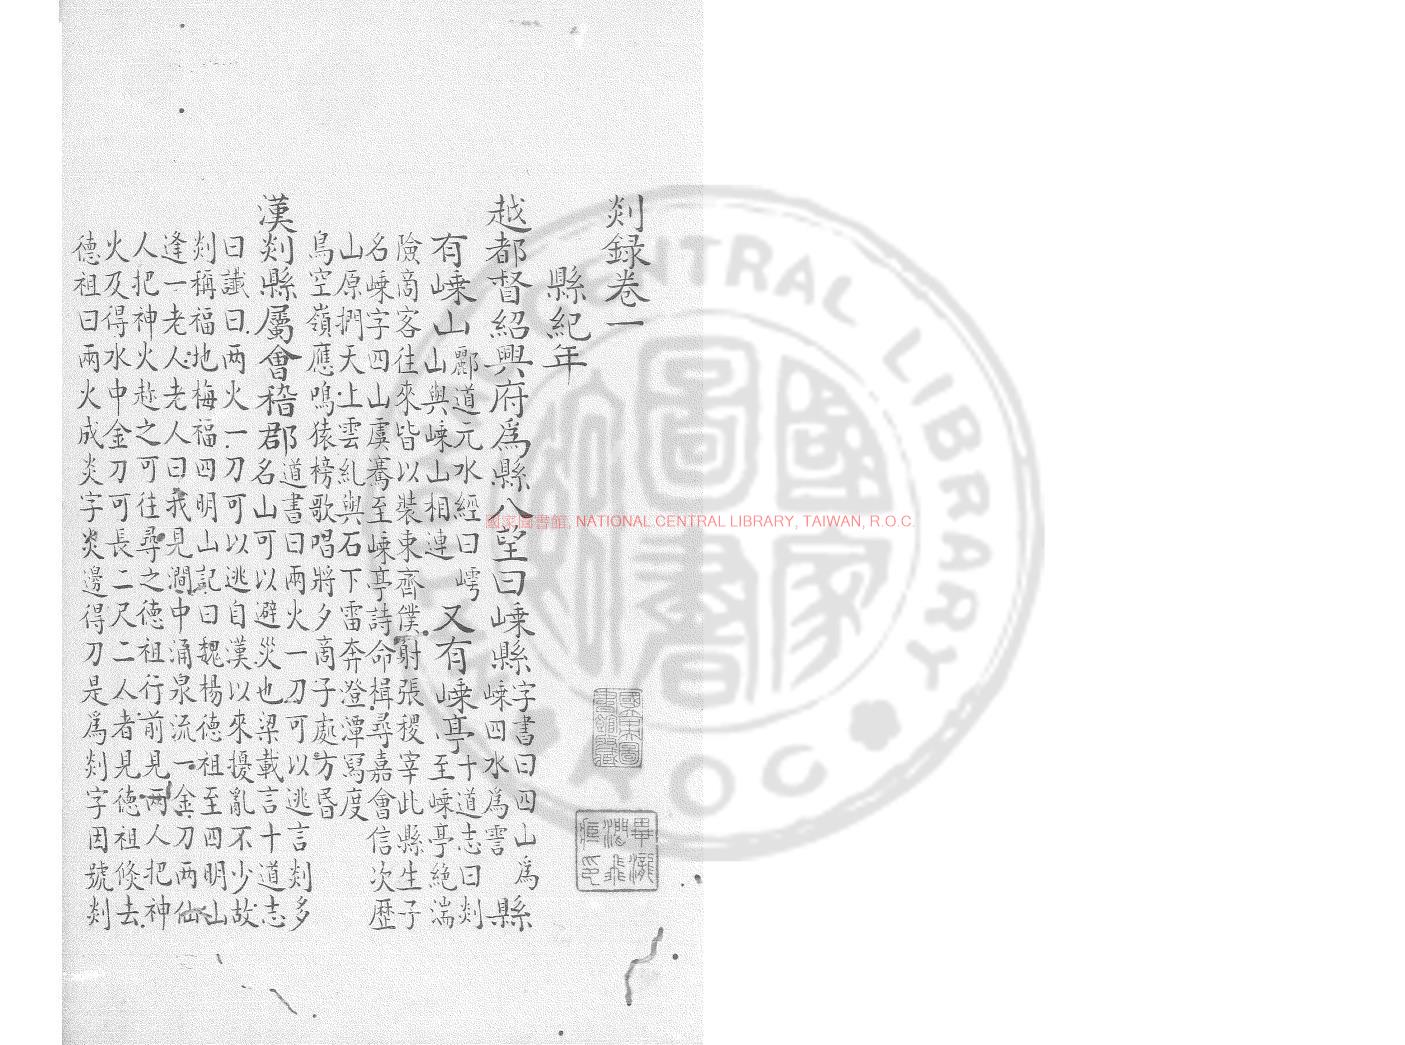 剡錄卷一
縣紀年
越都督紹興府爲縣八望曰嵊縣字書曰四山爲嵊四水爲䨱縣
有嵊山酈道元水經曰崿山與嵊山相連又有嵊亭十道志曰剡至嵊亭絶湍
險商客往來皆以裝束齊僕射張稷宰此縣生子
名嵊字四山虞騫至嵊亭詩命楫尋嘉會信次歷
山原捫天上雲糺與石下雷奔澄潭寫度
鳥空嶺應鳴猿榜歌唱將夕商子處方昏
漢剡縣屬會稽郡道書曰兩火一刀可以逃言剡多名山可以避災也梁載言十道志
曰讖曰两火一刀可以逃自漢以來擾亂不少故
剡稱福地梅福四明山記曰魏楊德祖至四明山
逢一老人老人曰我見澗中涌泉流一金刀两仙
人把神火赴之可往尋之德祖行前見两人把神
火及得水中金刀可長二尺二人者見德祖倐去
德祖曰兩火成炎字炎邊得刀是爲剡字因號剡
國家圖書館, NATIONAL CENTRAL LIBRARY, TAIWAN, R.O.C.
國家圖書館藏